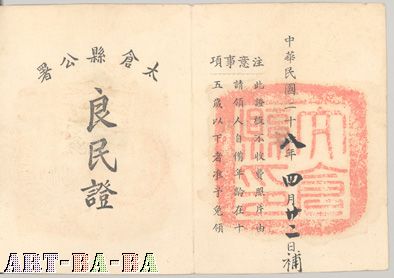 中華民國二十八年四月廿二日補
注意事項
此證概不收費照片由
請領人自備年齡在十
五歲以下者准予免領
太倉縣公署
良民證
ART-BA-BA